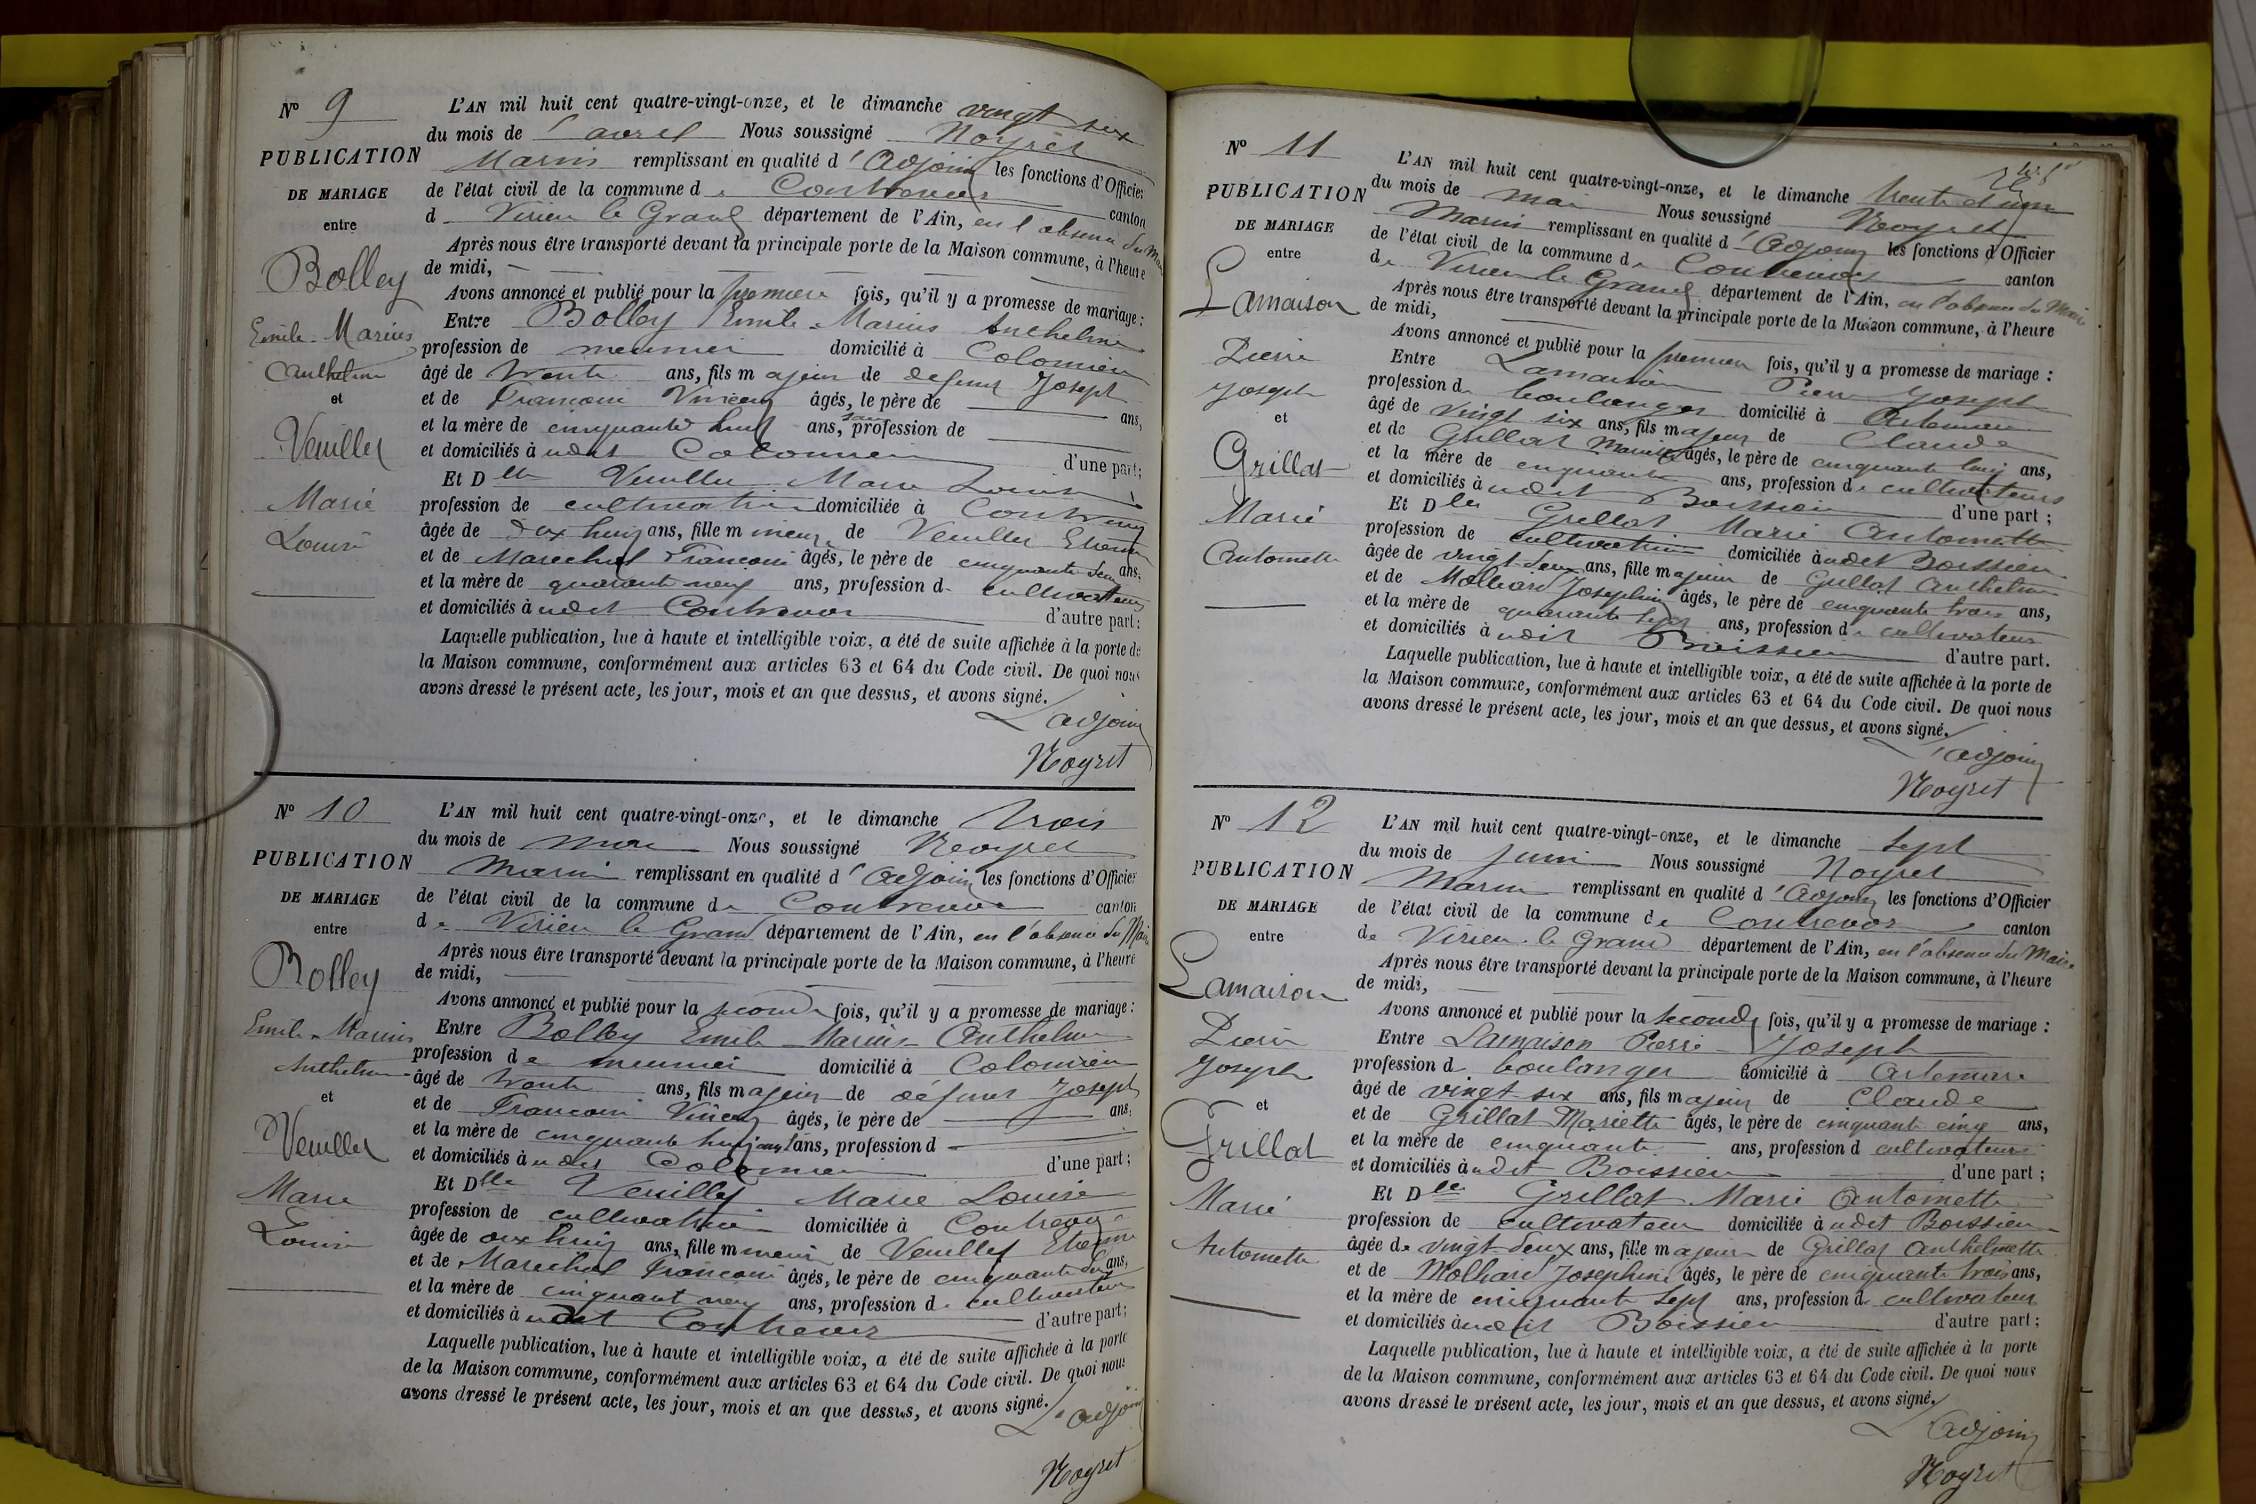 N° 9
PUBLICATION
DE MARIAGE
entre
Bolley
Emile-Marius
Anthelme
et
Veuillet
Marie
Louise
L'AN mil huit cent quatre-vingt-onze, et le dimanche vingt six
du mois de d'avril Nous soussigné Noyret
Marin remplissant en qualité d'adjoint les fonctions d'Officier
de l'état civil de la commune de Contrevoz canton
d Virieu le Grand département de l'Ain, en l'absence du Maire
Après nous être transporté devant la principale porte de la Maison commune, à l'heure
de midi,
Avons annoncé et publié pour la première fois, qu'il y a promesse de mariage :
Entre Bolley Emile Marius Anthelme
profession de meunier domicilié à Colomieu
âgé de trente ans, fils majeur de defunt Joseph
et de Françoise âgés, le père de ans,
et la mère de cinquante huit ans, sans profession de
et domiciliés à udit Colomieu d'une part;
Et Dlle Veuillet Marie Louise
profession de cultivatrice domiciliée à Contrevoz
âgée de dix huit ans, fille mineure de Veuillet Etienne
et de Marechal Françoise âgés, le père de cinquante deux ans,
et la mère de quarante neuf ans, profession de cultivateurs
et domiciliés à udit Contrevoz d'autre part:
Laquelle publication, lue à haute et intelligible voix, a été de suite affichée à la porte de
la Maison commune, conformément aux articles 63 et 64 du Code civil. De quoi nous
avons dressé le présent acte, les jour, mois et an que dessus, et avons signé.
L'adjoint
Noyret
N° 10
PUBLICATION
DE MARIAGE
entre
Bolley
Emile-Marius
Anthelme
et
Veuillet
Marie
Louise
L'AN mil huit cent quatre-vingt-onze, et le dimanche trois
du mois de mai Nous soussigné Noyret
Marin remplissant en qualité d'adjoint les fonctions d'Officier
de l'état civil de la commune de Contrevoz canton
de Virieu le Grand département de l'Ain, en l'absence du Maire
Après nous être transporté devant la principale porte de la Maison commune, à l'heure
de midi,
Avons annoncé et publié pour la seconde fois, qu'il y a promesse de mariage :
Entre Bolley Emile Marius Anthelme
profession de meunier domicilié à Colomieu
âgé de trente ans, fils majeur de défunt Joseph
et de Françoise âgés, le père de ans,
et la mère de cinquante huit ans, profession d
et domiciliés à udit Colomieu d'une part;
Et Dlle Veuillet Marie Louise
profession de cultivatrice domiciliée à Contrevoz
âgée de dix huit ans, fille mineure de Veuillet Etienne
et de Marechal Françoise âgés, le père de cinquante deux ans,
et la mère de cinquant neuf ans, profession de cultivateurs
et domiciliés à udit Contrevoz d'autre part;
Laquelle publication, lue à haute et intelligible voix, a été de suite affichée à la porte
de la Maison commune, conformément aux articles 63 et 64 du Code civil. De quoi nous
avons dressé le présent acte, les jour, mois et an que dessus, et avons signé.
L'adjoint
Noyret
N° 11
PUBLICATION
DE MARIAGE
entre
Lamaison
Pierre
Joseph
et
Grillat
Marie
Antoinette
L'AN mil huit cent quatre-vingt-onze, et le dimanche trente et un
du mois de mai Nous soussigné Noyret
Marin remplissant en qualité d'adjoint les fonctions d'Officier
de l'état civil de la commune de Contrevoz canton
de Virieu le Grand département de l'Ain, en l'absence du Maire
Après nous être transporté devant la principale porte de la Maison commune, à l'heure
de midi,
Avons annoncé et publié pour la première fois, qu'il y a promesse de mariage :
Entre Lamaison Pierre Joseph
profession de boulanger domicilié à Artemare
âgé de vingt six ans, fils majeur de Claude
et de Grillat Mariette âgés, le père de cinquante cinq ans,
et la mère de cinquante ans, profession de cultivateurs
et domiciliés à udit Boissieu d'une part ;
Et Dlle Grillat Marie Antoinette
profession de cultivatrice domiciliée à udit Boissieu
âgée de vingt-deux ans, fille majeure de Grillat Anthelme
et de Molliard Josephine âgés, le père de cinquante trois ans,
et la mère de quarante sept ans, profession de cultivateurs
et domiciliés à udit Boissieu d'autre part.
Laquelle publication, lue à haute et intelligible voix, a été de suite affichée à la porte de
la Maison commune, conformément aux articles 63 et 64 du Code civil. De quoi nous
avons dressé le présent acte, les jour, mois et an que dessus, et avons signé.
L'adjoint
Noyret
N° 12
PUBLICATION
DE MARIAGE
entre
Lamaison
Pierre
Joseph
et
Grillat
Marie
Antoinette
L'AN mil huit cent quatre-vingt-onze, et le dimanche sept
du mois de juin Nous soussigné Noyret
Marin remplissant en qualité d'adjoint les fonctions d'Officier
de l'état civil de la commune de Contrevoz canton
de Virieu-le Grand département de l'Ain, en l'absence du Maire
Après nous être transporté devant la principale porte de la Maison commune, à l'heure
de midi,
Avons annoncé et publié pour la seconde fois, qu'il y a promesse de mariage :
Entre Lamaison Pierre Joseph
profession de boulanger domicilié à Artemare
âgé de vingt-six ans, fils majeur de Claude
et de Grillat Mariette âgés, le père de cinquante cinq ans,
et la mère de cinquante ans, profession d cultivateurs
et domiciliés à udit Boissieu d'une part ;
Et Dlle Grillat Marie Antoinette
profession de cultivateur domiciliée à udit Boissieu
âgée de vingt-deux ans, fille majeure de Grillat Anthelmette
et de Molliard Josephine âgés, le père de cinquante trois ans,
et la mère de cinquante sept ans, profession de cultivateur
et domiciliés à udit Boissieu d'autre part ;
Laquelle publication, lue à haute et intelligible voix, a été de suite affichée à la porte
de la Maison commune, conformément aux articles 63 et 64 du Code civil. De quoi nous
avons dressé le présent acte, les jour, mois et an que dessus, et avons signé.
L'adjoint
Noyret